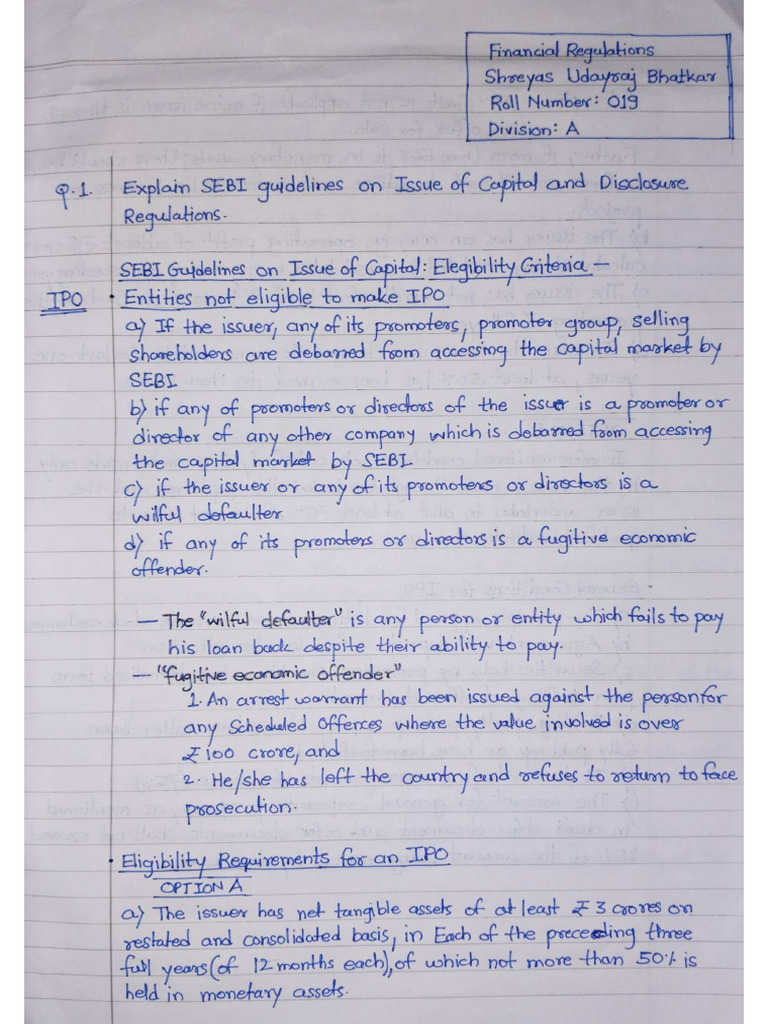 Financial Regulations
Shreyas Udayraj Bhatkar
Roll Number: 019
Division: A
Q.1. Explain SEBI guidelines on Issue of Capital and Disclosure
Regulations.
SEBI Guidelines on Issue of Capital: Elegibility Criteria –
IPO • Entities not eligible to make IPO
a) If the issuer, any of its promoters, promoter group, selling
shareholders are debarred from accessing the capital market by
SEBI
b) if any of promoters or directors of the issuer is a promoter or
director of any other company which is debarred from accessing
the capital market by SEBI
c) if the issuer or any of its promoters or directors is a
wilful defaulter
d) if any of its promoters or directors is a fugitive economic
offender.
– The "wilful defaulter" is any person or entity which fails to pay
his loan back despite their ability to pay.
– "fugitive economic offender"
1. An arrest warrant has been issued against the person for
any Scheduled Offences where the value involved is over
₹100 crore, and
2. He/she has left the country and refuses to return to face
prosecution.
• Eligibility Requirements for an IPO
OPTION A
a) The issuer has net tangible assets of at least ₹3 crores on
restated and consolidated basis, in Each of the preceding three
full years (of 12 months each), of which not more than 50% is
held in monetary assets.